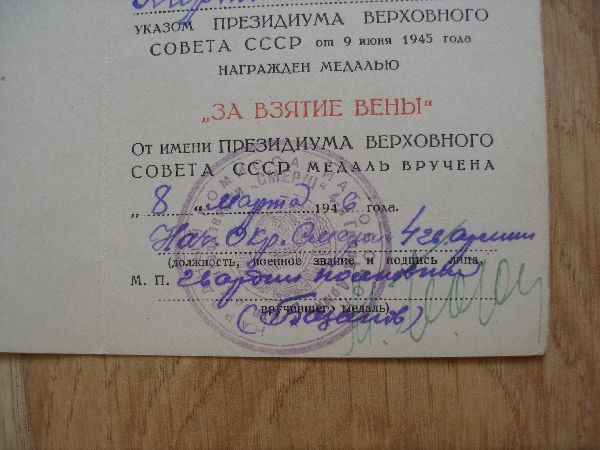 УКАЗОМ ПРЕЗИДИУМА ВЕРХОВНОГО
СОВЕТА СССР от 9 июня 1945 года
НАГРАЖДЕН МЕДАЛЬЮ
„ЗА ВЗЯТИЕ ВЕНЫ“
От имени ПРЕЗИДИУМА ВЕРХОВНОГО
СОВЕТА СССР МЕДАЛЬ ВРУЧЕНА
„8“ марта 1946 года.
Нач. Окр. Смерш 4 гв армии
(должность, военное звание и подпись лица,
М. П. гвардии полковник
вручившего медаль)
„СМЕРШ“